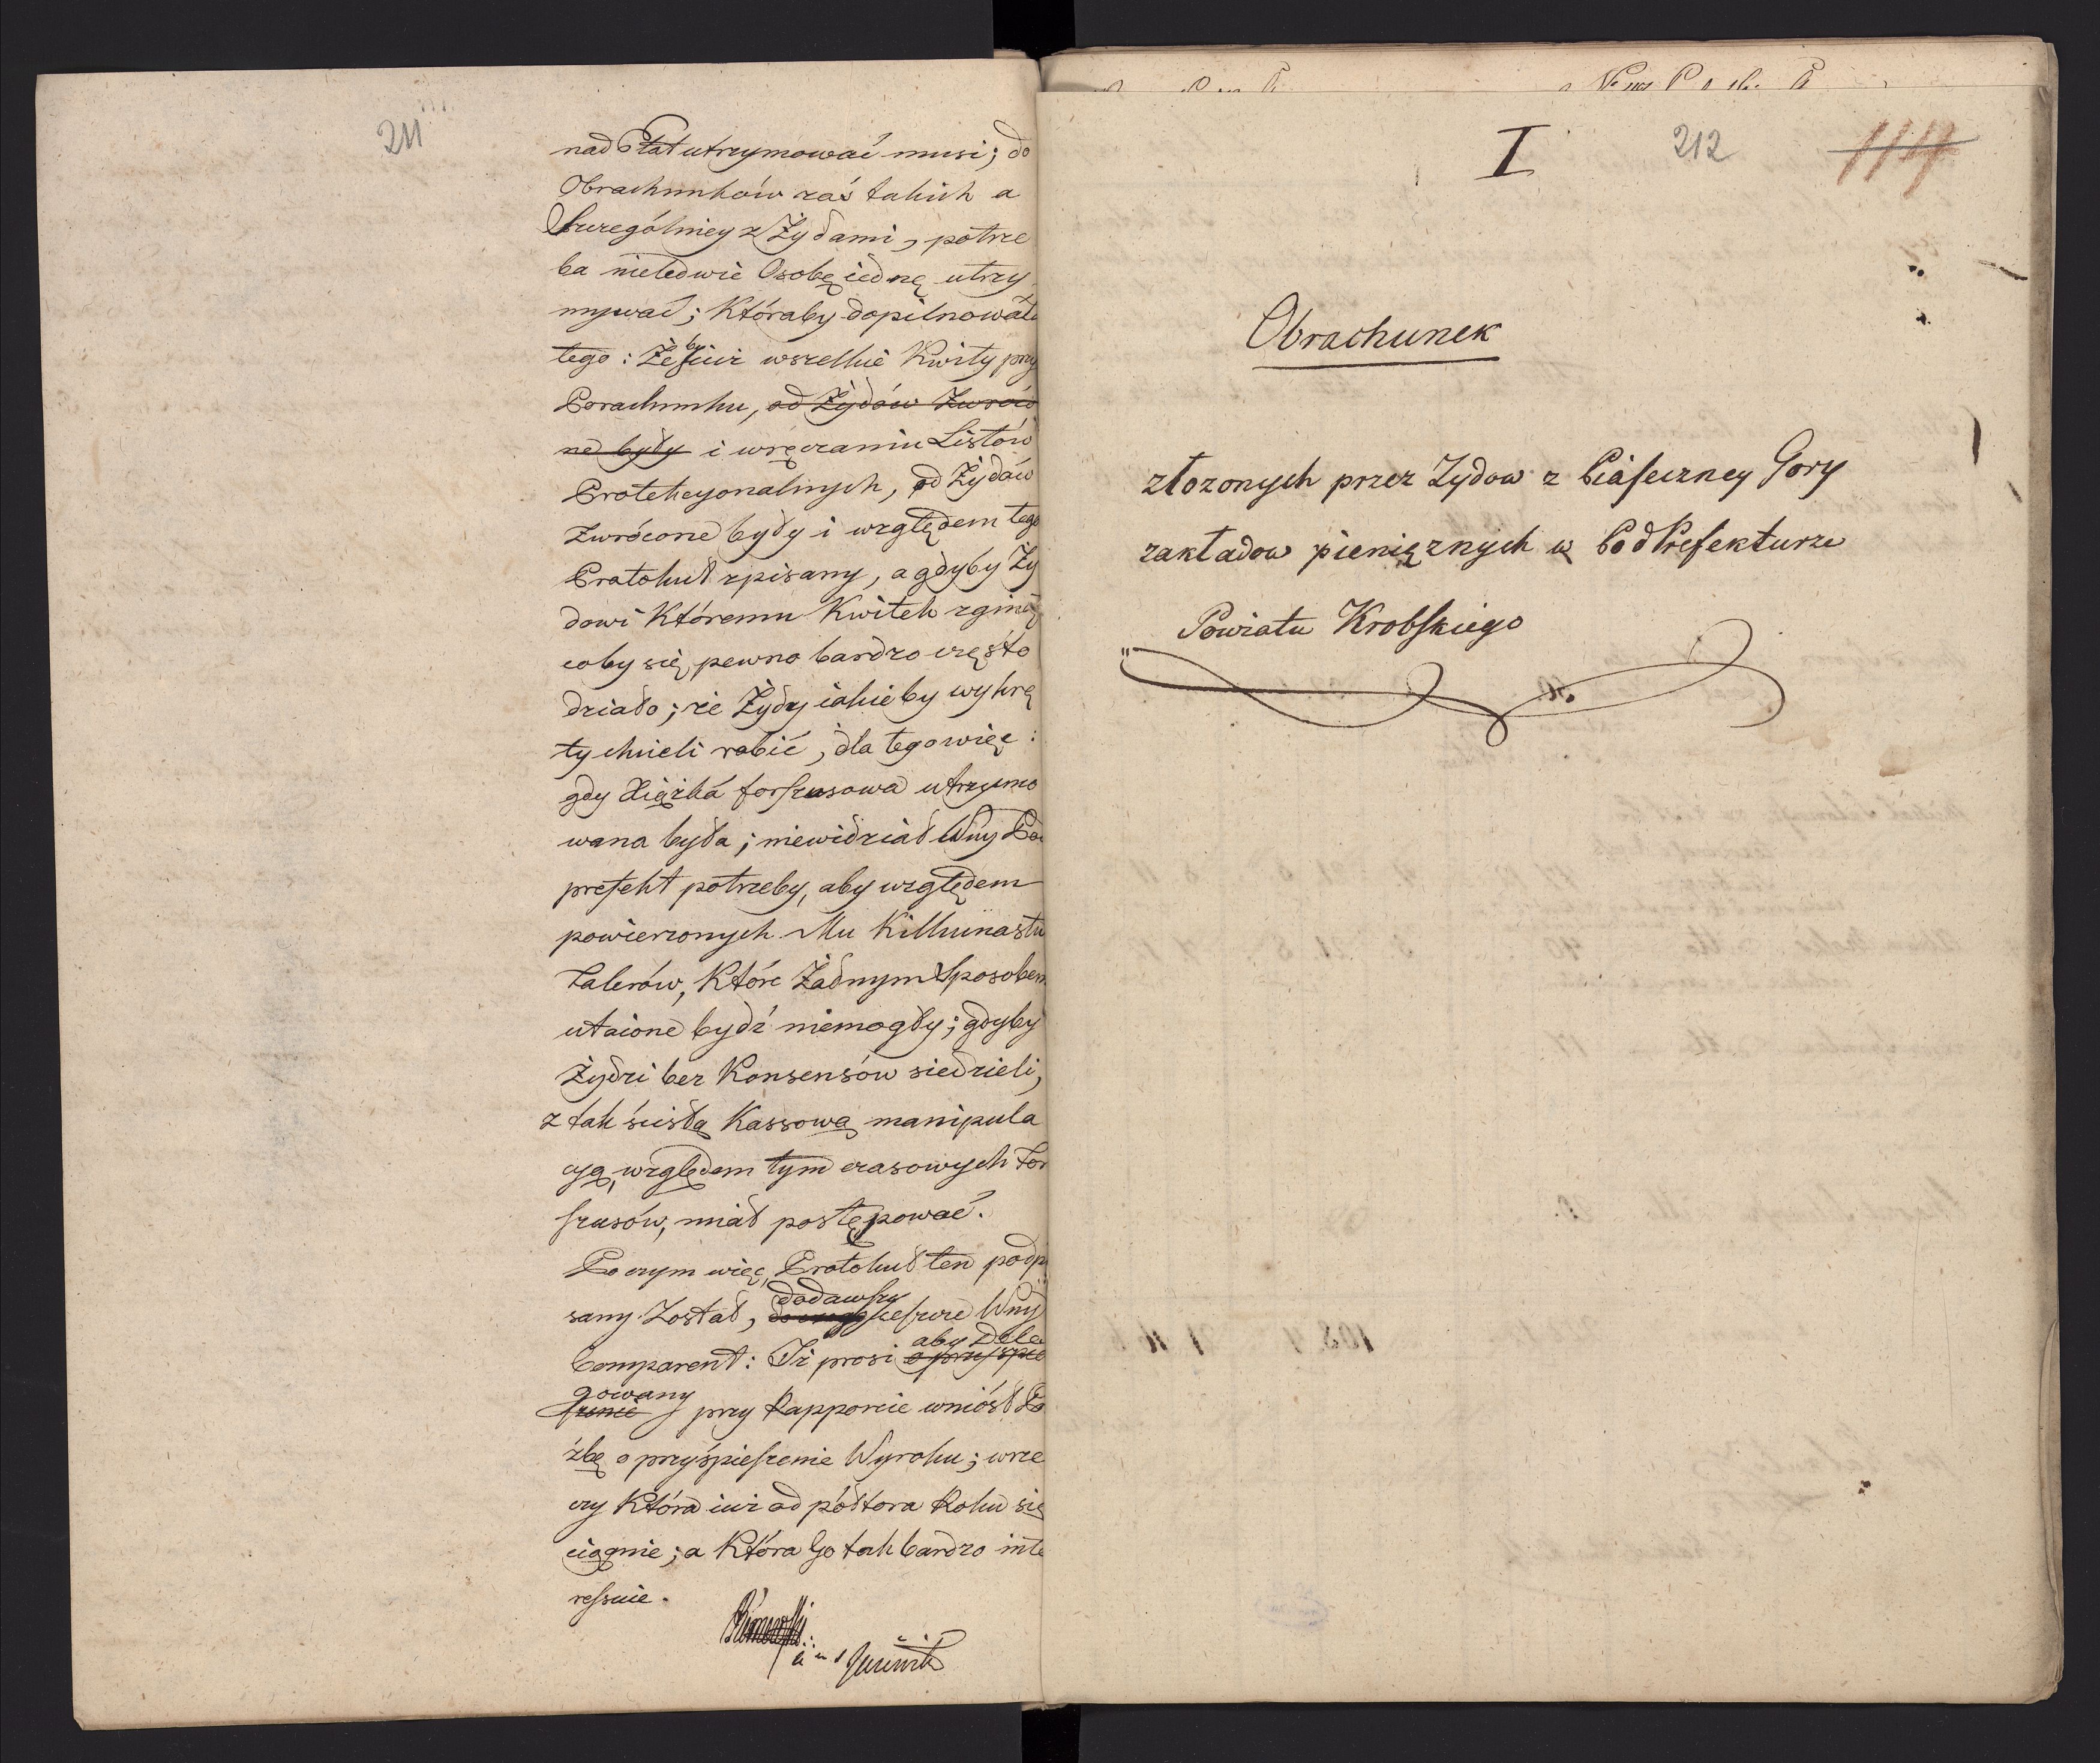 211
nad Etat utrzymować musi; do
Obrachunków zaś takich a
Szczególniey z Żydami, potrze
ba nieledwie Osobę iednę utrzy
mywać; Któraby dopilnowała
tego: Żeby iuż wszelkie Kwity przy
Porachunku, od Żydów Zwróco
ne były i wręczaniu Listów
Protekcyonalnych, od Żydów
Zwrócone były i względem tego
Protokuł spisany, a gdyby Ży
dowi Któremu Kwitek zginął
coby się pewno bardzo często
działo; że Żydzy iakieby wykrę
ty chcieli robić, dla tego więc:
gdy Xiążka forszusowa utrzymo
wana była; niewidział Wny Pod
prefekt potrzeby, aby względem
powierzonych Mu Kilkunastu
Talerów, Które Żadnym Sposobem
utaione bydź niemogły; gdyby
Żydzi bez Konsensów siedzieli,
z tak ścisłą Kassową manipula
cyą, względem tymczasowych For
szusów, miał postępować.
Po czym więc, Protokuł ten podpi
sany Został, dodawszy ieszcze Wny
Comparent: Iż prosi aby Dele
gowany przy Rapporcie wniósł Pro
źbę o przyśpieszenie Wyroku; w rze
czy Która iuż od półtora Roku się
ciągnie; a Która Go tak bardzo inte
ressuie.
I 212 114
Obrachunek
złozonych przez Zydow z Piaseczney Gory
zakładow pieniężnych w PodPrefekturze
Powiatu Krobskiego